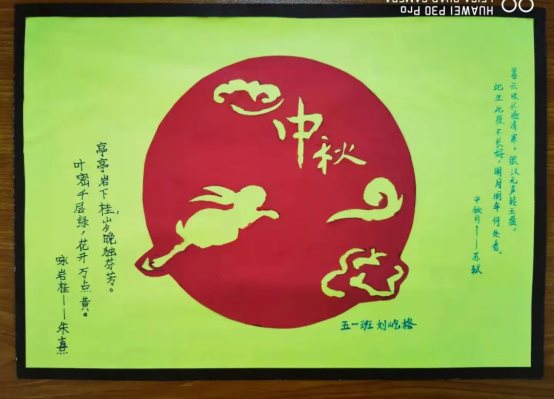 HUAWEI P30 Pro
LEICA QUAD CAMERA
中秋
暮云收尽溢清寒，银汉无声转玉盘。
此生此夜不长好，明月明年何处看。
中秋月——苏轼
亭亭岩下桂，岁晚独芬芳。
叶密千层绿，花开万点黄。
咏岩桂——朱熹
五一班 刘屹格